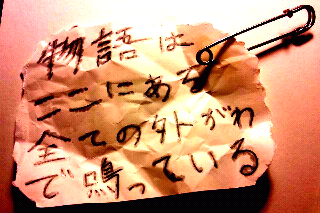 物語は
ここにある
全ての外がわ
で鳴っている